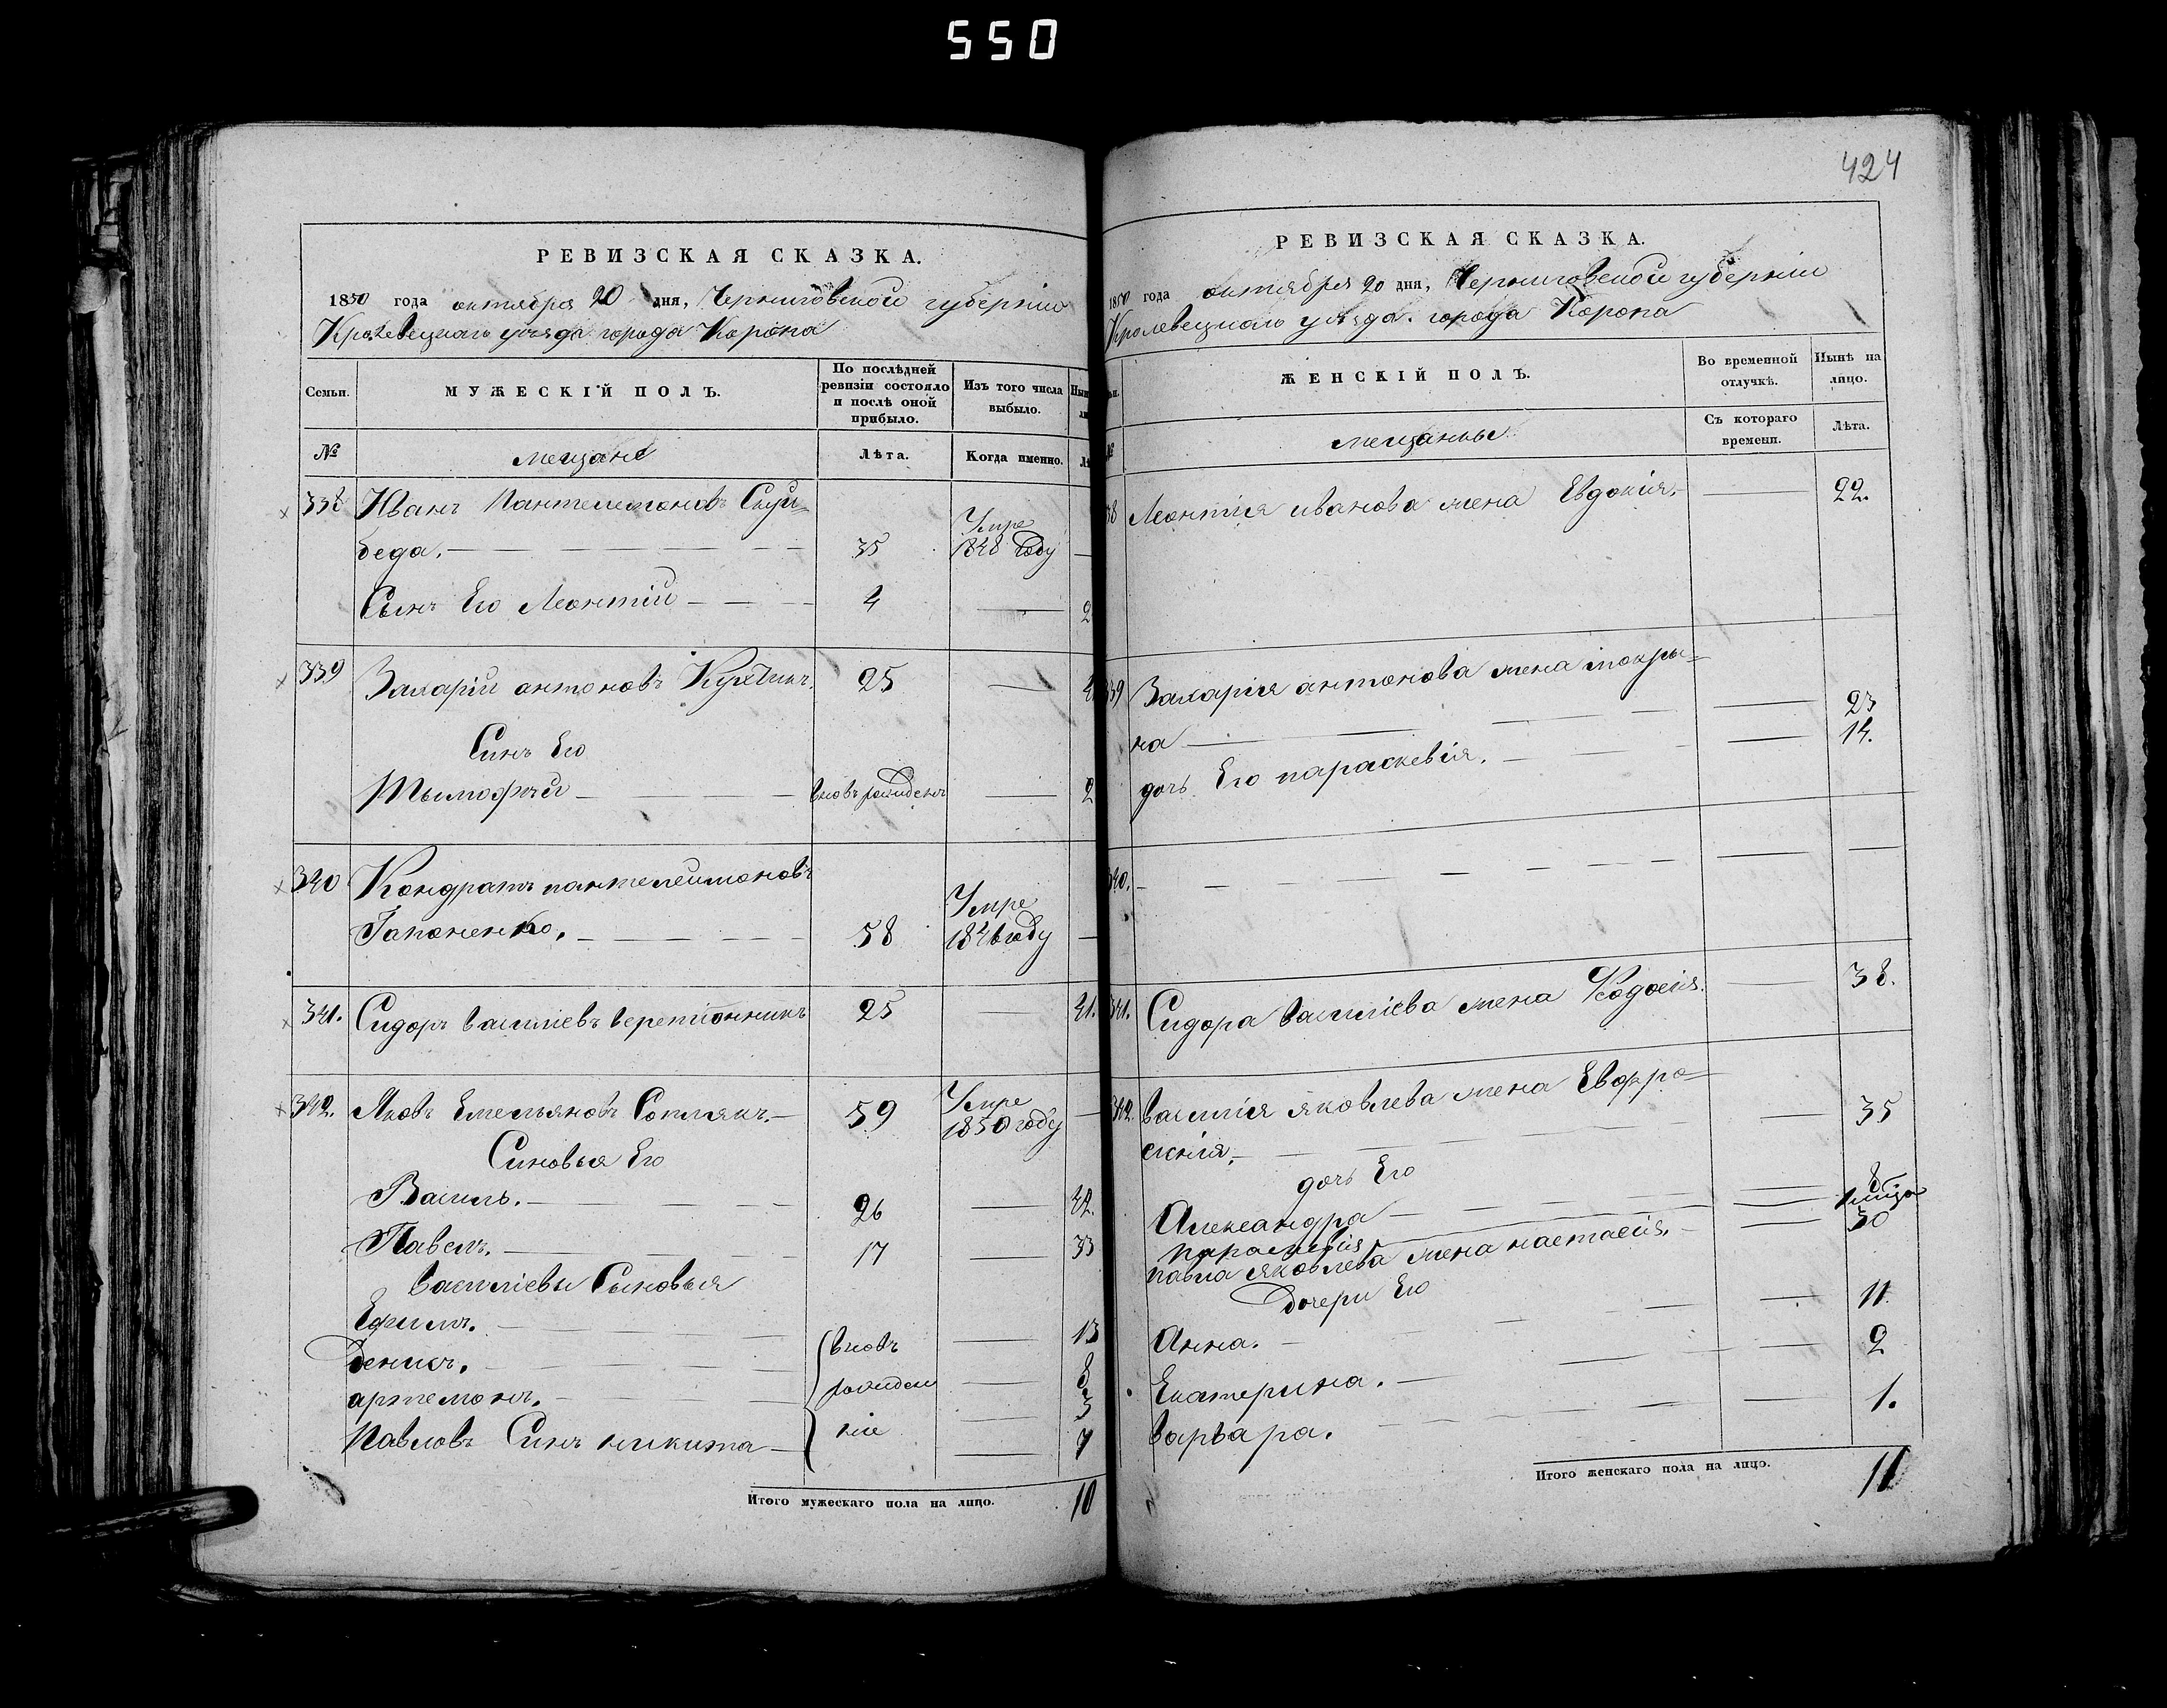 550
424
РЕВИЗСКАЯ СКАЗКА.
1850 года октября 20 дня, Черниговской губерніи
Кролевецкаго уѣзда города Коропа
Семьи.
МУЖЕСКІЙ ПОЛЪ.
По послѣдней
ревизіи состояло
и послѣ оной
прибыло.
Изъ того числа
выбыло.
№
мещане
Лѣта.
Когда именно.
338 Иванъ Пантелимоновъ Скуй=
беда. 35 Умре 1848 году
Сынъ Его Леонтій 4
339 Захарій антоновъ 25
Синъ Его
Тымофѣй вновь рожденъ
340 Кондратъ пантелеимоновъ
Гапоненко. 58 Умре 1846 году
341. Сидоръ василіевъ веретіонникъ 25 41.
342. Яковъ Емельяновъ Соплякъ. 59 Умре 1850 году
Синовья Его
Василь. 26 42.
Павелъ. 17 33
василіевы Сыновья
Ефимъ. вновь 13
денисъ. 8
артемонъ. рожден 3
Павловъ Синъ никита ніе 7
Итого мужескаго пола на лицо. 10
РЕВИЗСКАЯ СКАЗКА.
1850 года октября 20 дня, Черниговской губерніи
Кролевецкаго уѣзда. города Коропа
ЖЕНСКІЙ ПОЛЪ.
Во временной
отлучкѣ.
Нынѣ на
лицо.
мещанки
Съ котораго
времени.
Лѣта.
38 Леонтія иванова жена Евдокія. 22.
39 Захарія антонова жена мокры=
на 23
дочь Его параскевія. 14.
340.
341. Сидора василіева жена Феодосія. 38.
342. василія яковлева жена Евфро=
синія. 35
дочь Его
Александра 8
параскевія
павла яковлева жена настасія. 30
Дочери Его
Анна. 11
Екатерина. 2
варвара. 1.
Итого женскаго пола на лицо. 11